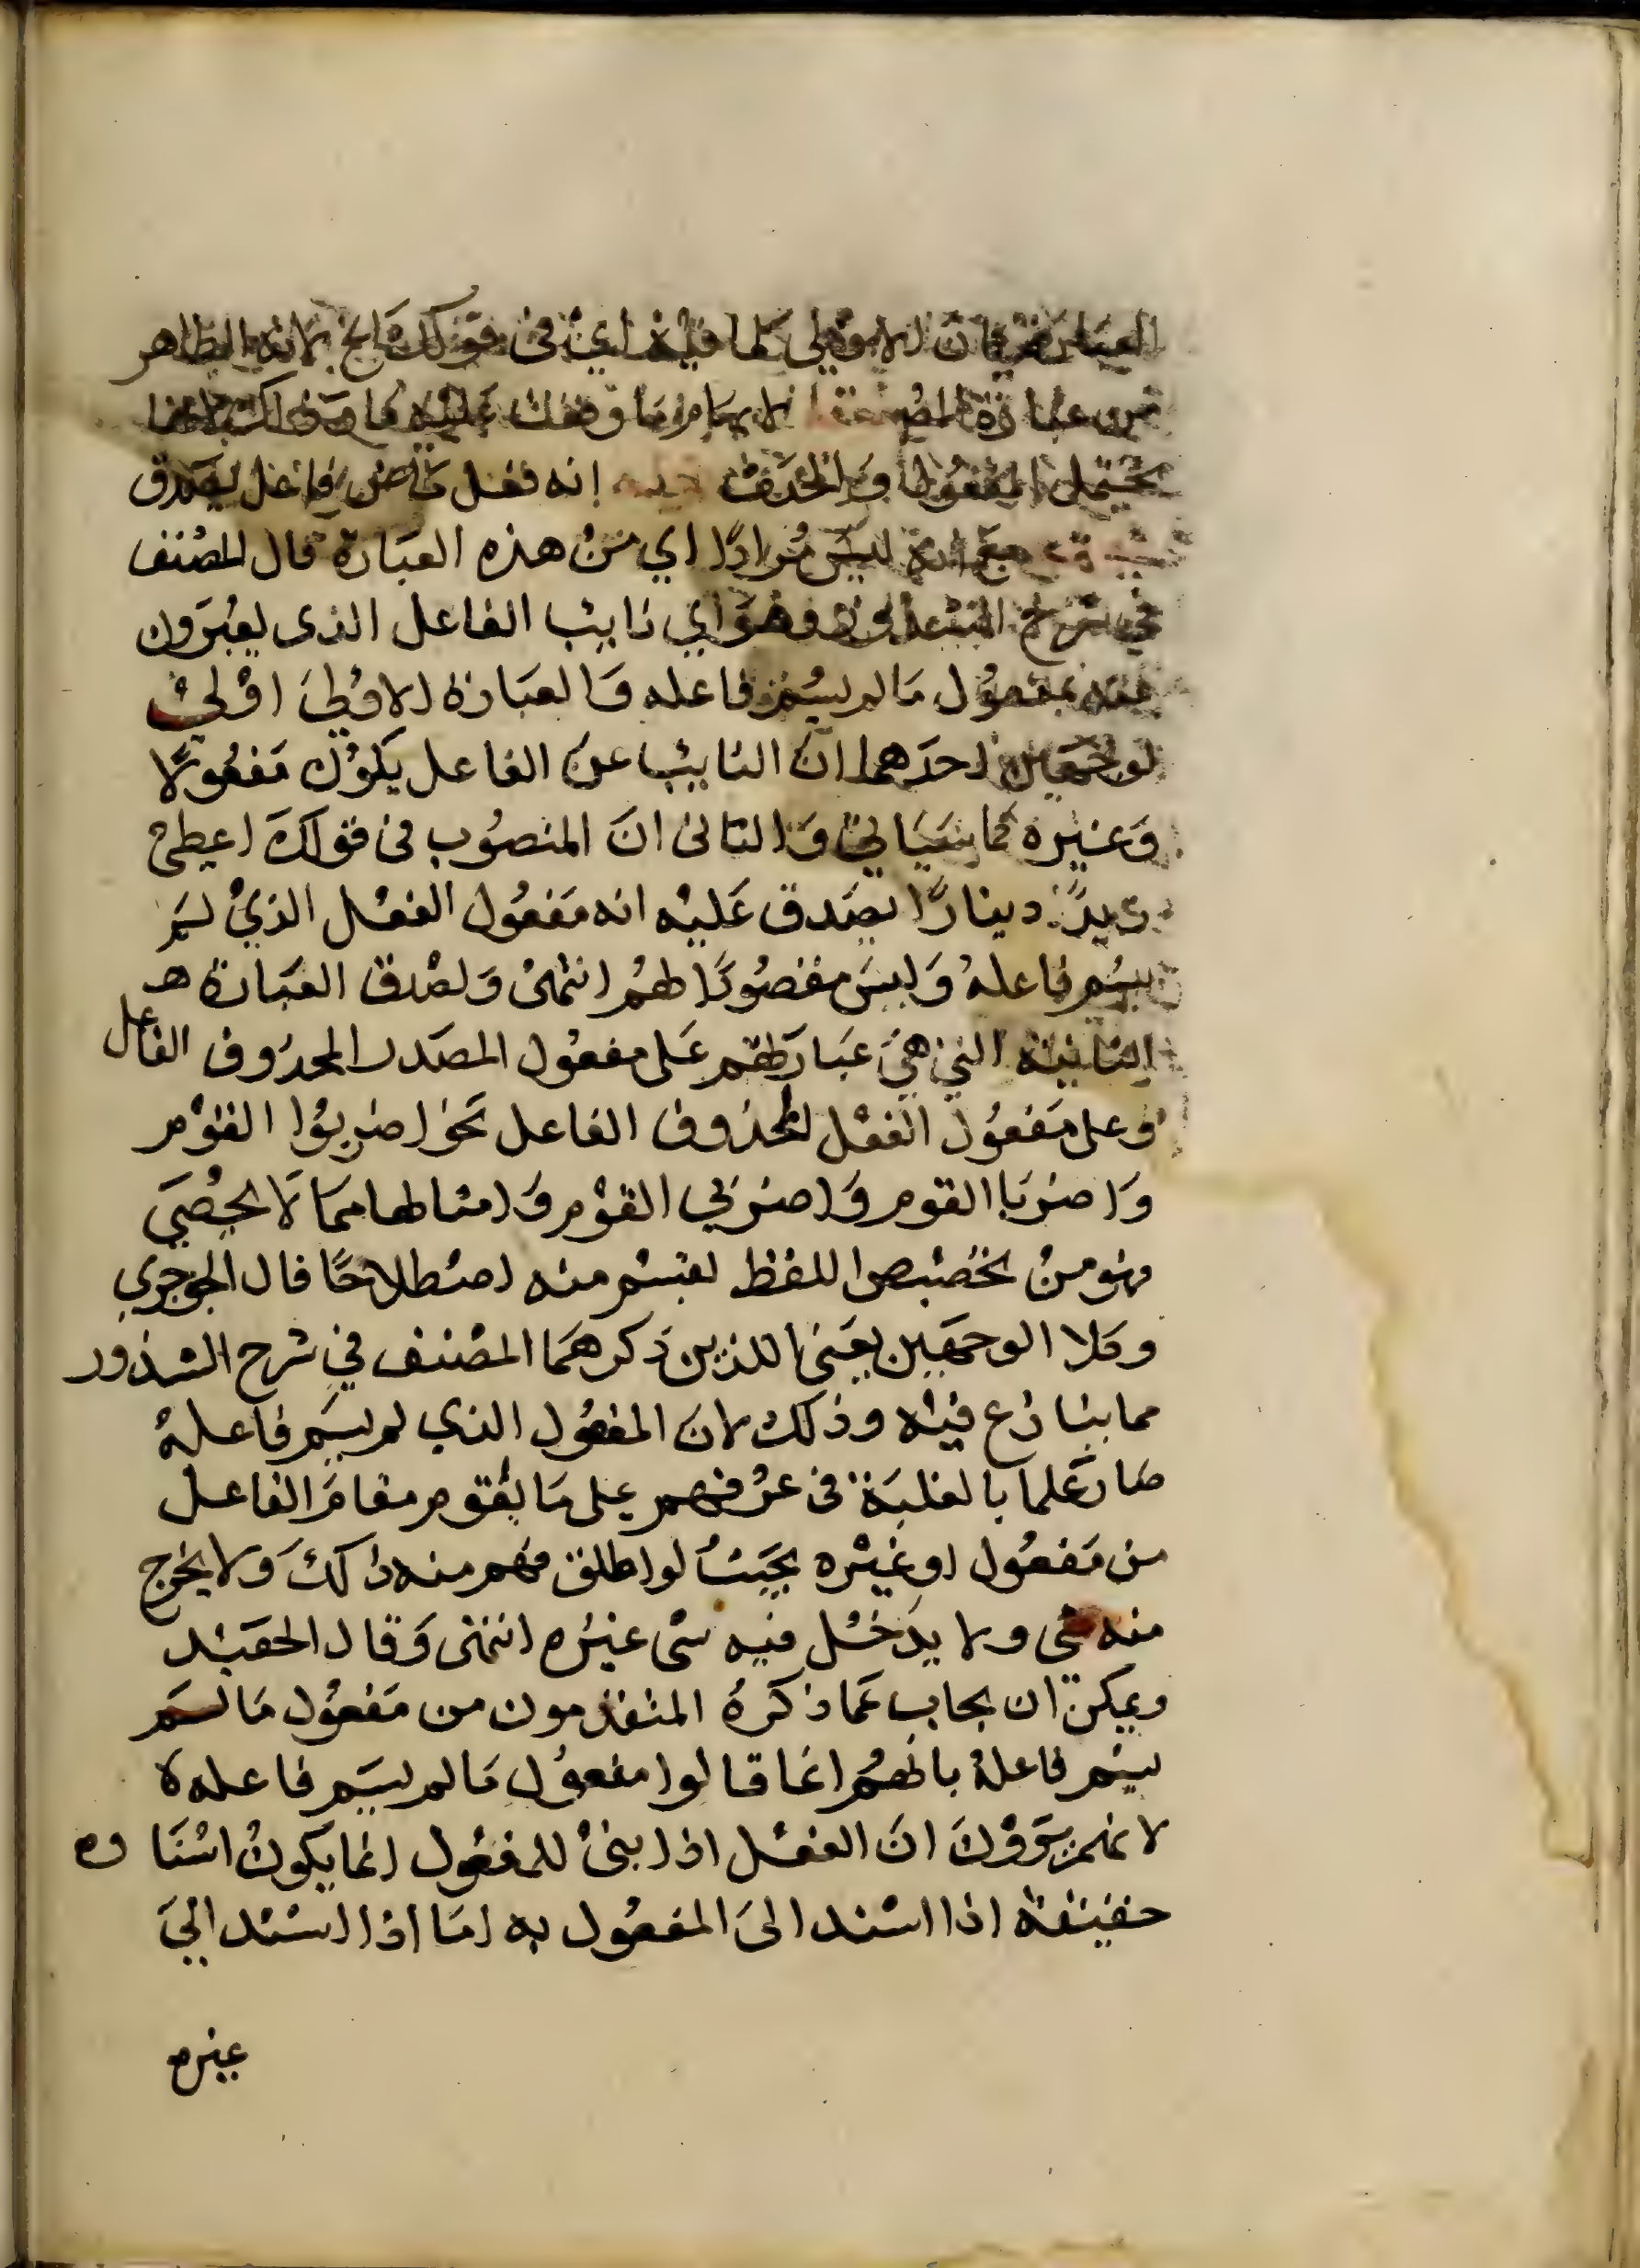 العبارتين فان الاولى كما فيه اي في قولك الخ لانه الظاهر
من عبارة المصنف لا
يحتمل المفعول والحدث انه فعل فاعل يصدق
مع انه ليس مرادا اي من هذه العبارة قال المصنف
في شرح وهو اي نايب الفاعل الذي يعبرون
عنه بمفعول ما لم يسم فاعله والعبارة الاولى اولى
لوجهين احدهما ان النايب عن الفاعل يكون مفعولا
وغيره كما سياتي والثاني ان المنصوب في قولك اعطى
زيد دينارا يصدق عليه انه مفعول الفعل الذي لم
يسم فاعله وليس مقصودا لهم انتهى ولصدق العبارة هـ
الثانية التي هي عبارتهم على مفعول المصدر المحذوف الفاعل
وعلى مفعول الفعل المحذوف الفاعل نحو اضربوا القوم
واضربا القوم واضربي القوم وامثالها مما لا يحصى
فهو من تخصيص اللفظ لقسم منه اصطلاحا قال الجوجري
وكلا الوجهين يعني اللذين ذكرهما المصنف في شرح الشذور
مما ينازع فيه وذلك لان المفعول الذي لم يسم فاعله
صار علما بالغلبة في عرفهم على ما يقوم مقام الفاعل
من مفعول او غيره بحيث لو اطلق فهم منه ذلك ولا يخرج
منه شي ولا يدخل فيه شي غيره انتهى وقال الحفيد
ويمكن ان يجاب عما ذكره المتقدمون من مفعول ما لم
يسم فاعله بانهم انما قالوا مفعول ما لم يسم فاعله ه
لانهم يرون ان الفعل اذا بني للمفعول انما يكون اسناده
حقيقة اذا اسند الى المفعول به اما اذا اسند الى
غيره